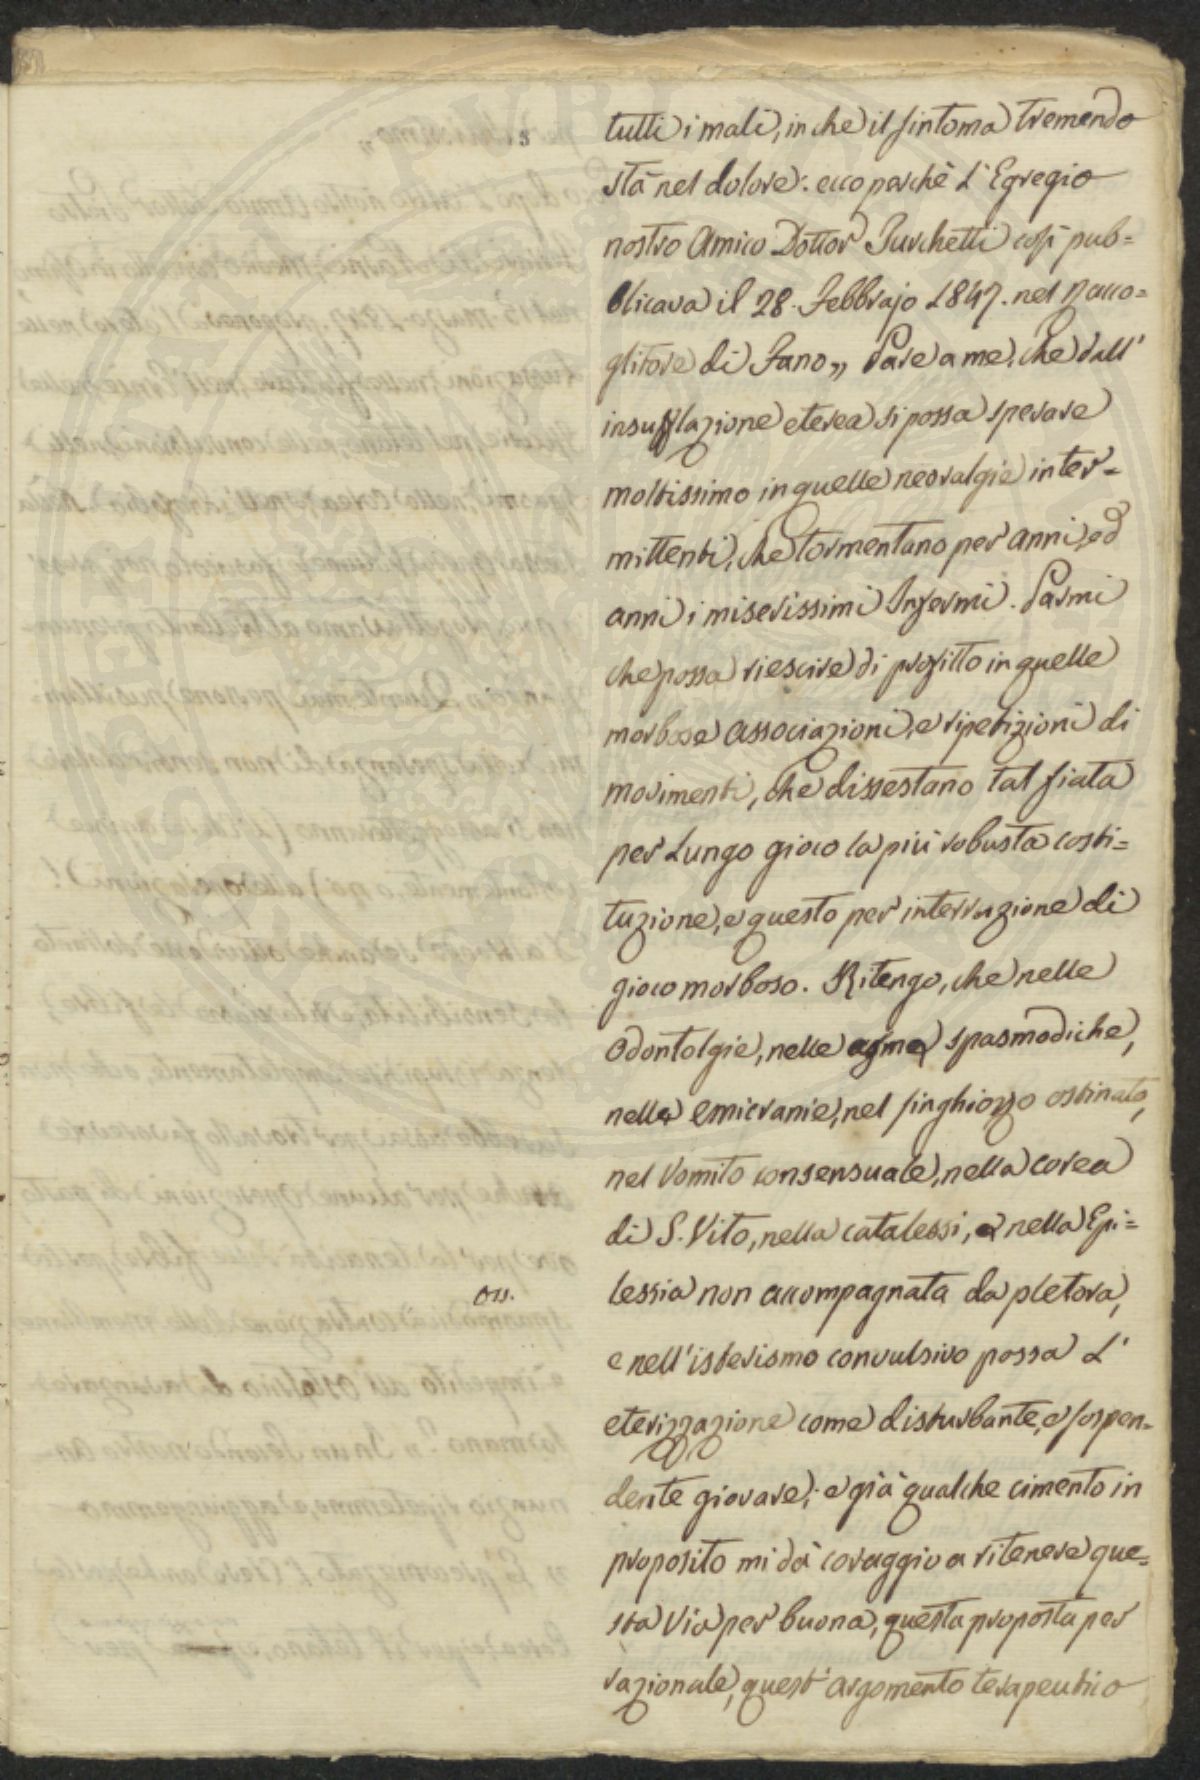 tutti i mali, in che il sintoma tremendo
stà nel dolore: ecco perchè l'Egregio
nostro Amico Dottor Turchetti così pub=
blicava il 28. Febbrajo 1847. nel Racco=
glitore di Fano „ Pare a me, che dall'
insufflazione eterea si possa sperare
moltissimo in quelle nevralgie inter=
mittenti, che tormentano per anni, ed
anni i miserissimi Infermi. Parmi
che possa riescire di profitto in quelle
morbose associazioni, e ripetizioni di
movimenti, che dissestano tal fiata
per lungo gioco la più robusta costi=
tuzione, e questo per interruzione di
gioco morboso. Ritengo, che nelle
Odontolgie, nelle asme spasmodiche,
nelle emicranie, nel singhiozzo ostinato,
nel Vomito consensuale, nella corea
di S. Vito, nella catalessi, e nella Epi=
lessia non accompagnata da pletora,
e nell'isterismo convulsivo possa l'
eterizzazione come disturbante, e sospen=
dente giovare; e già qualche cimento in
proposito mi dà coraggio a ritenere que=
sta Via per buona, questa proposta per
razionale, quest'argomento terapeutico